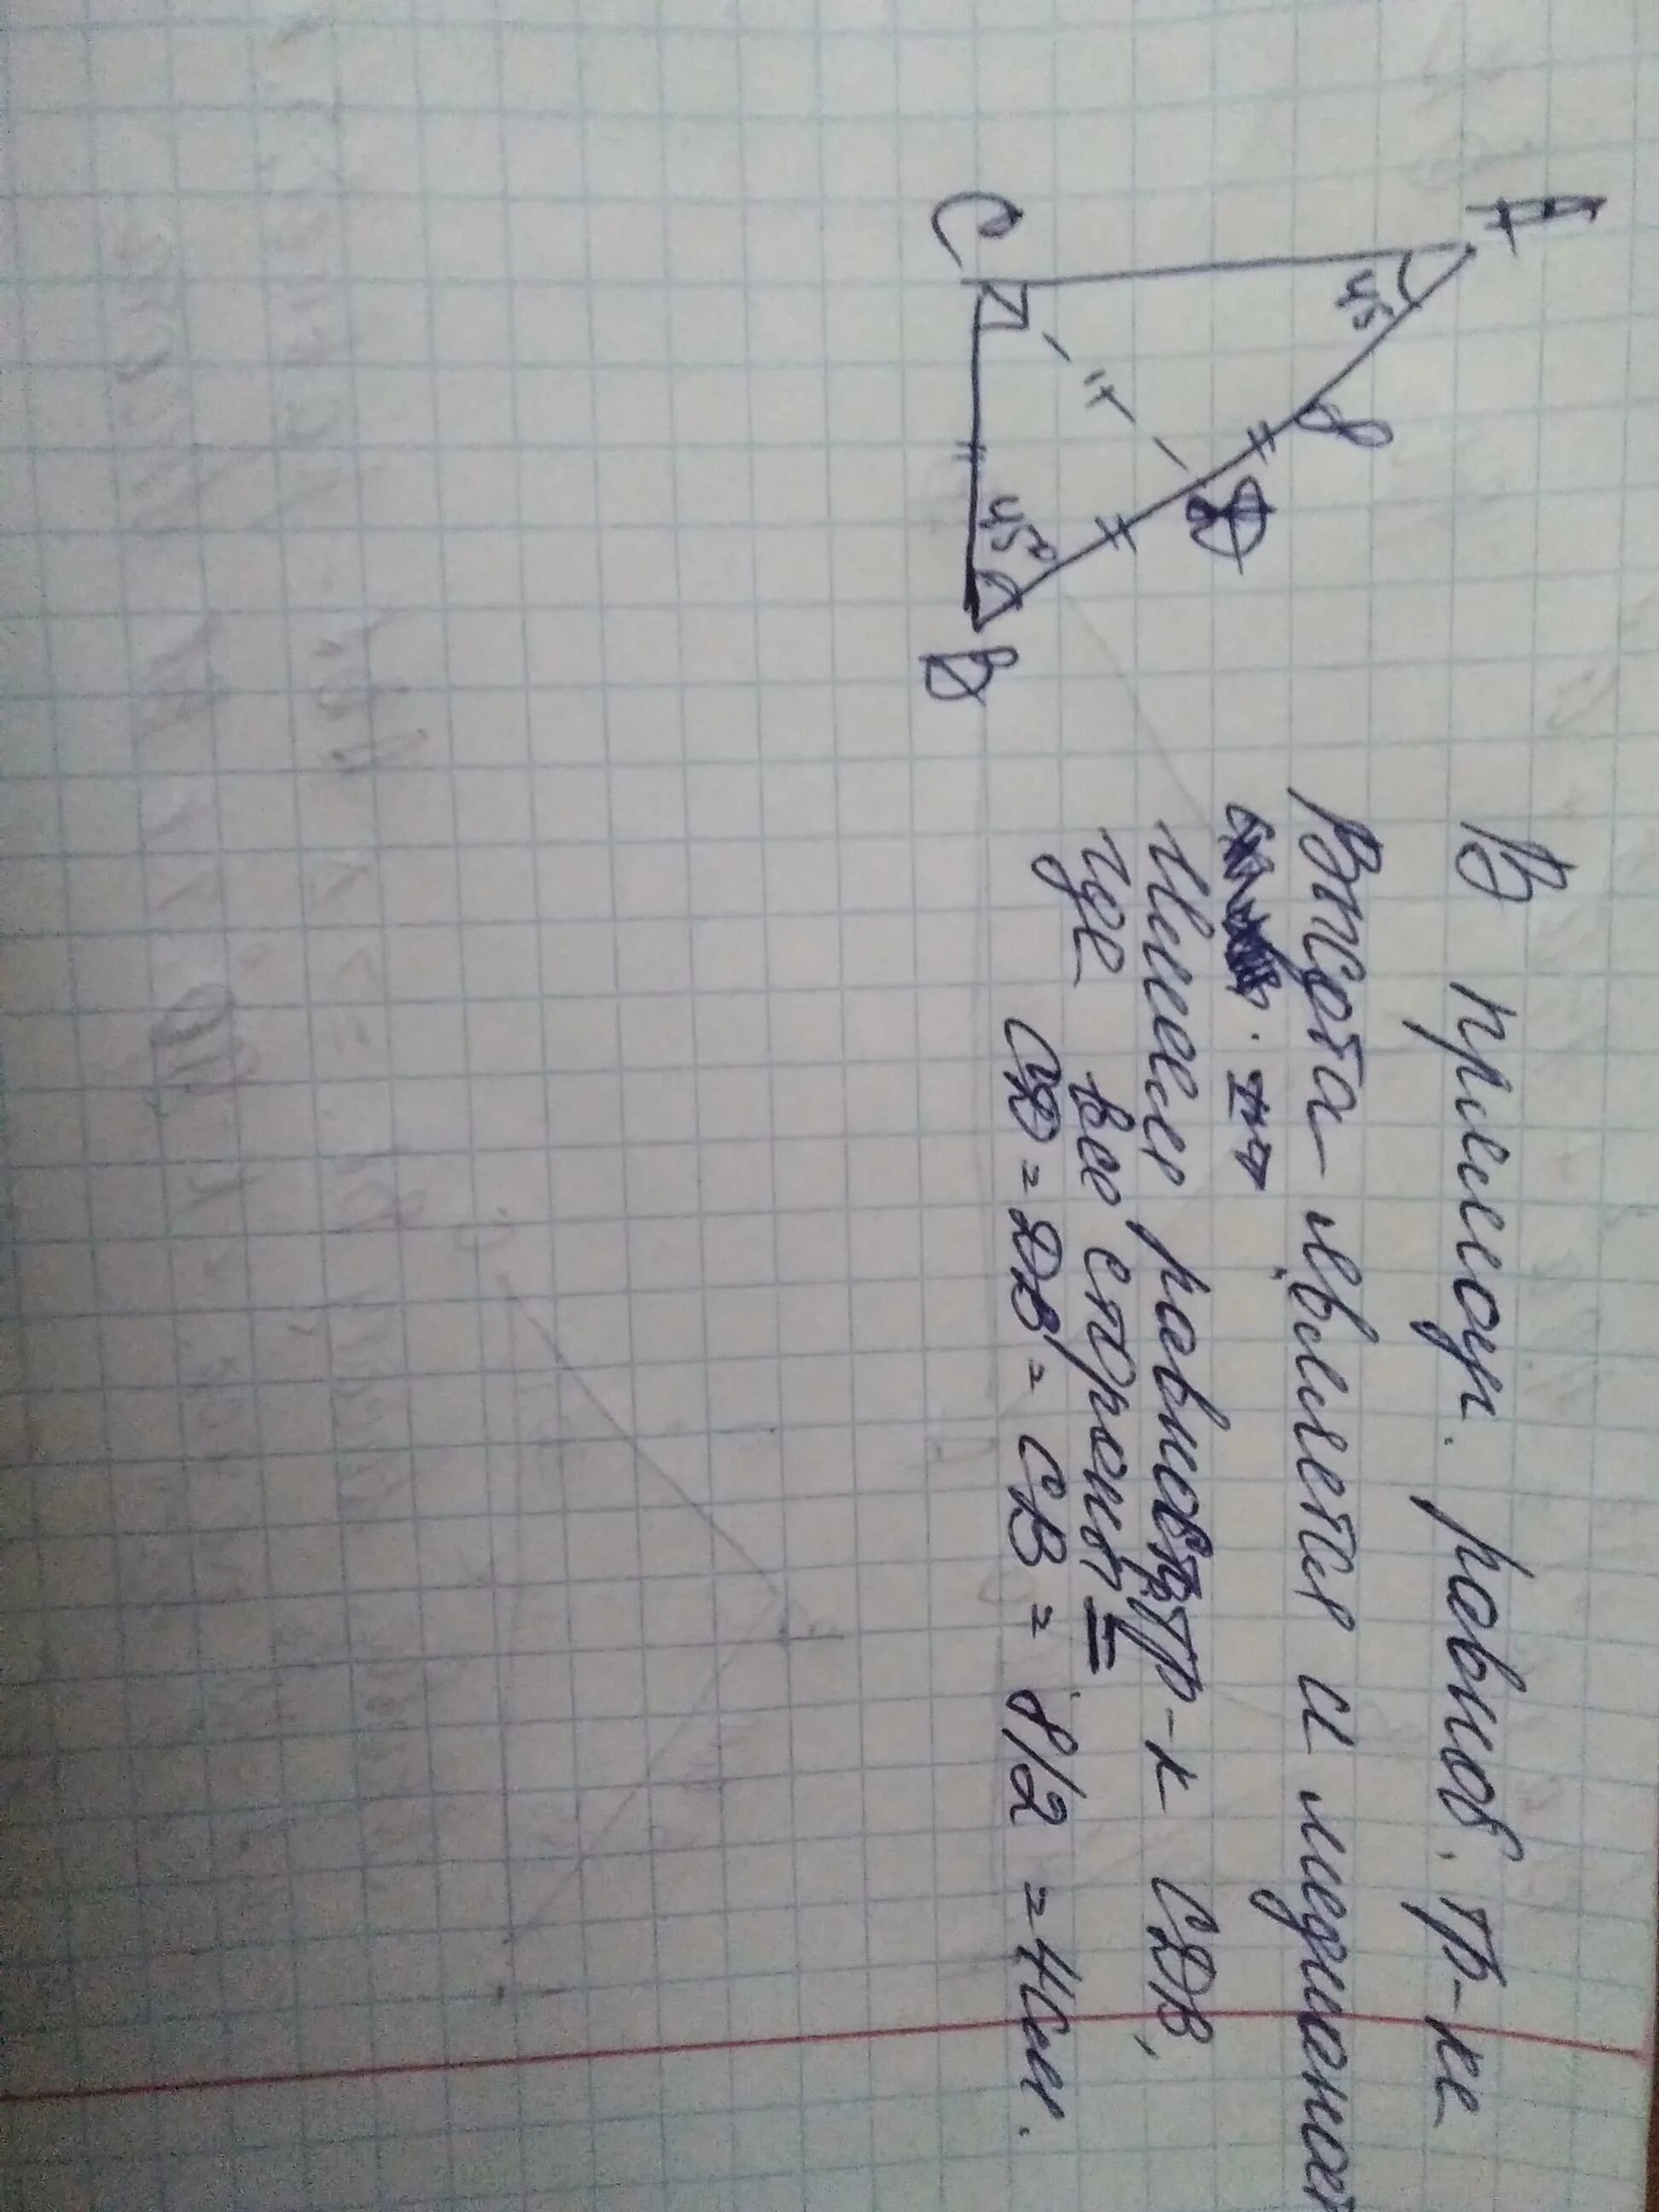 A
45°
8
D
4
C
45°
B
В прямоуг. равноб. тр-ке
Высота является и медианой
Имеем равност тр-к CDB,
где все стороны =
CD = DB = CB = 8/2 = 4см.